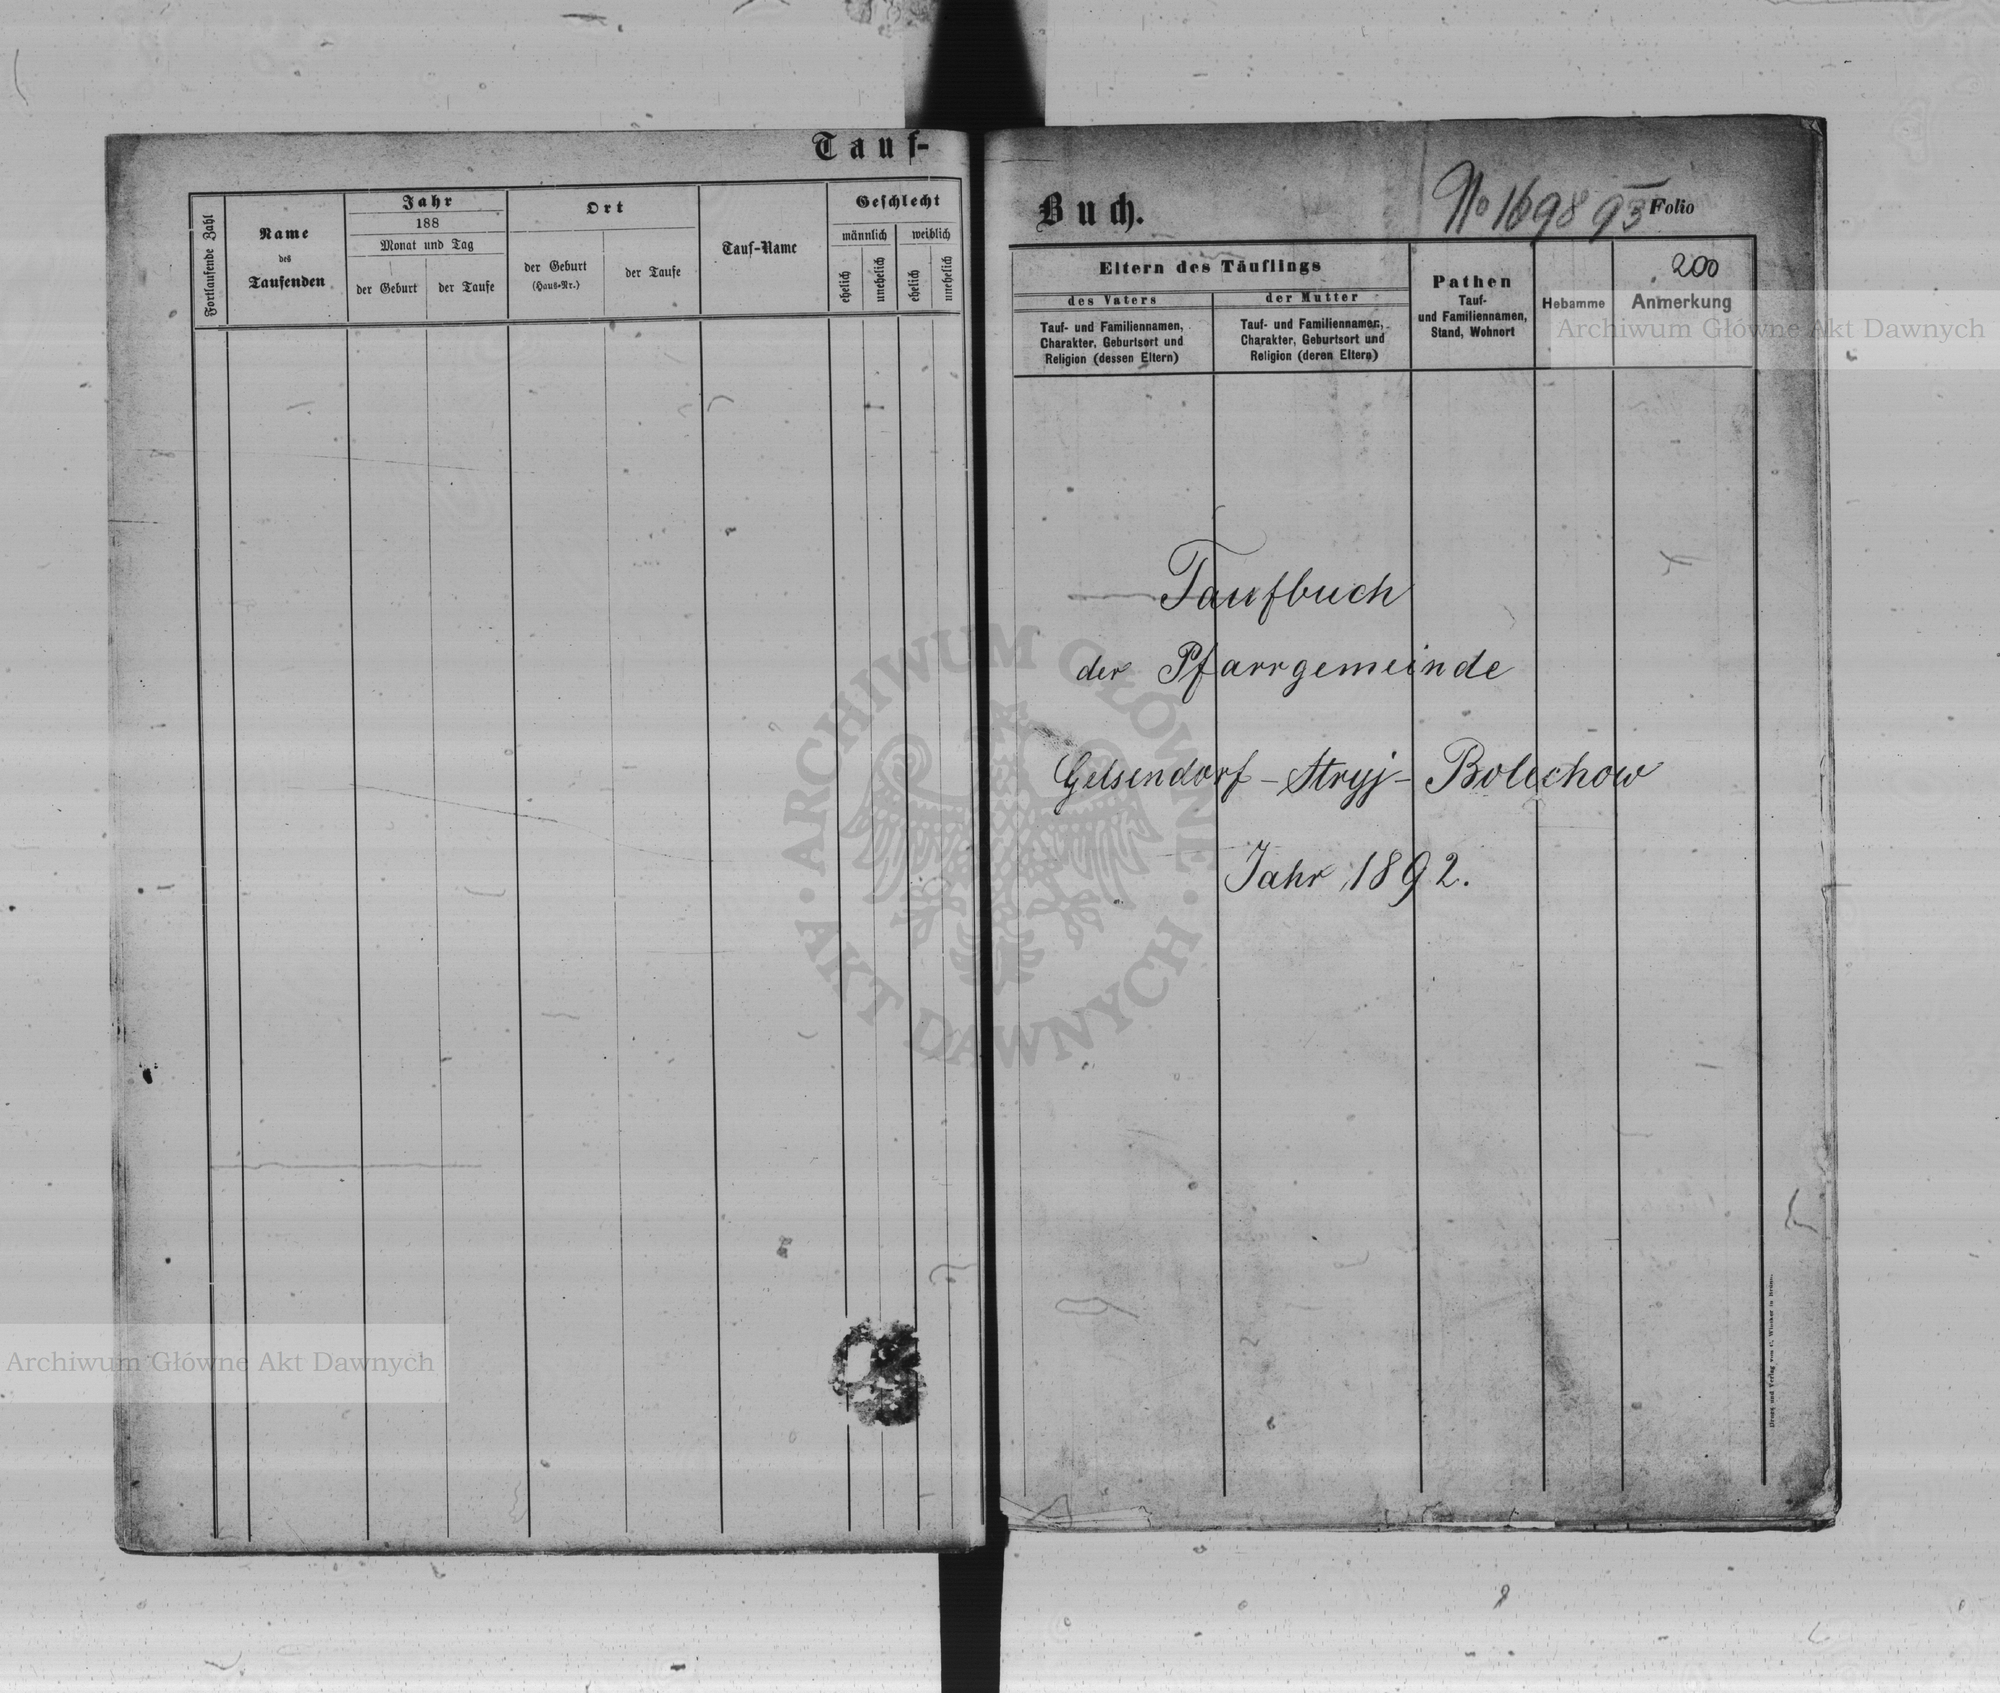 Tauf-
Fortlaufende Zahl
Name
des
Taufenden
Jahr
188
Monat und Tag
der Geburt
der Taufe
Ort
der Geburt
(Haus-Nr.)
der Taufe
Tauf-Name
Geschlecht
männlich
weiblich
ehelich
unehelich
ehelich
unehelich
Buch.
No 1698 93
Folio
200
Eltern des Täuflings
des Vaters
Tauf- und Familiennamen,
Charakter, Geburtsort und
Religion (dessen Eltern)
der Mutter
Tauf- und Familiennamen,
Charakter, Geburtsort und
Religion (deren Eltern)
Pathen
Tauf-
und Familiennamen,
Stand, Wohnort
Hebamme
Anmerkung
Archiwum Główne Akt Dawnych
Taufbuch
der Pfarrgemeinde
Gelsendorf - Stryj - Bolechow
Jahr 1892.
ARCHIWUM GŁÓWNE
AKT DAWNYCH
Archiwum Główne Akt Dawnych
Druck und Verlag von C. Winiker in Brünn.